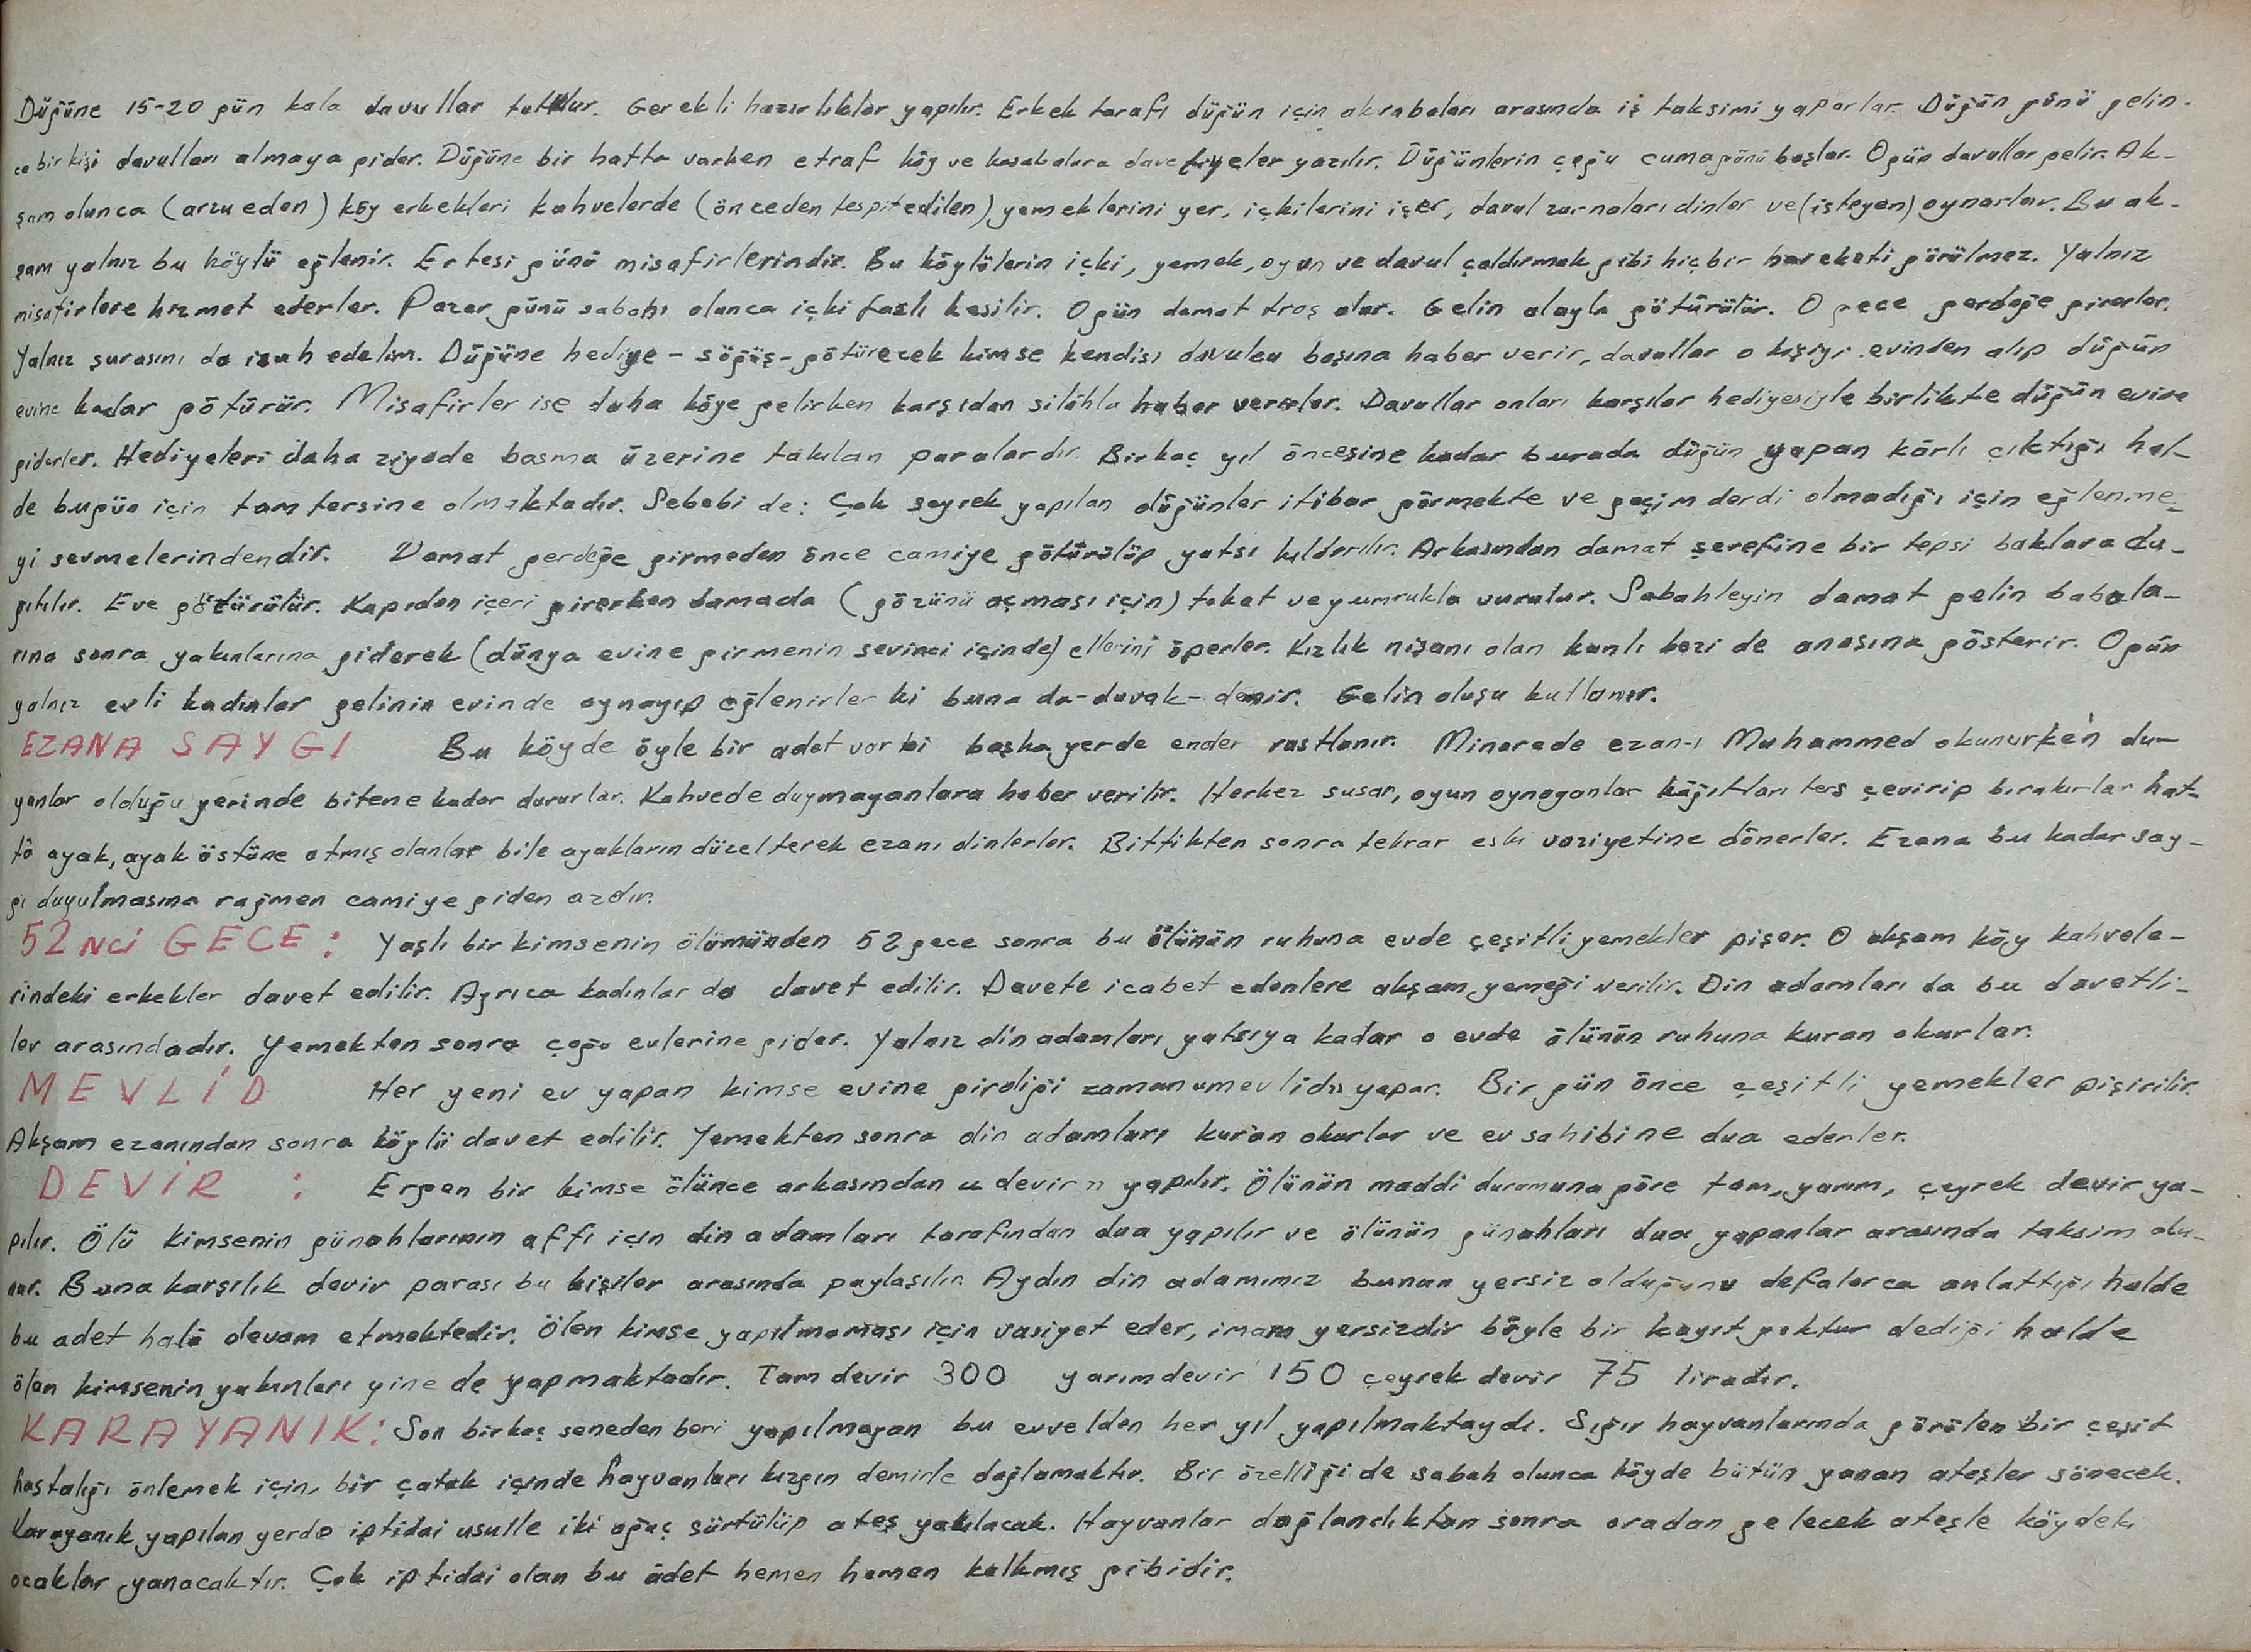 Düğüne 15-20 gün kala davullar tutulur. Gerekli hazırlıklar yapılır. Erkek tarafı düğün için akrabaları arasında iş taksimi yaparlar. Düğün günü gelin-
ce bir kişi davulları almaya gider. Düğüne bir hafta varken etraf köy ve kasabalara davetiyeler yazılır. Düğünlerin çoğu cumagünü başlar. Ogün davullar gelir. Ak-
şam olunca (arzu eden) köy erkekleri kahvelerde (önceden tespit edilen) yemeklerini yer, içkilerini içer, davul zurnaları dinler ve (isteyen) oynarlar. Bu ak-
şam yalnız bu köylü eğlenir. Ertesi günü misafirlerindir. Bu köylülerin içki, yemek, oyun ve davul çaldırmak gibi hiçbir hareketi görülmez. Yalnız
misafirlere hizmet ederler. Pazar günü sabahı olunca içki faslı kesilir. Ogün damat traş olur. Gelin alayla götürülür. O gece gerdeğe girerler.
Yalnız şurasını da izah edelim. Düğüne hediye - söğüş - götürecek kimse kendisi davulcu başına haber verir, davullar o kişiyi evinden alıp düğün
evine kadar götürür. Misafirler ise daha köye gelirken karşıdan silâhla haber verirler. Davullar onları karşılar hediyesiyle birlikte düğün evine
giderler. Hediyeleri daha ziyade basma üzerine takılan paralardır. Birkaç yıl öncesine kadar burada düğün yapan kârlı çıktığı hal-
de bugün için tam tersine olmaktadır. Sebebi de: Çok seyrek yapılan düğünler itibar görmekte ve geçim derdi olmadığı için eğlenme-
yi sevmelerindendir. Damat gerdeğe girmeden önce camiye götürülüp yatsı kıldırılır. Arkasından damat şerefine bir tepsi baklava da-
ğıtılır. Eve götürülür. Kapıdan içeri girerken damada (gözünü açması için) tokat ve yumrukla vurulur. Sabahleyin damat gelin babala-
rına sonra yakınlarına giderek (dünya evine girmenin sevinci içinde) ellerini öperler. Kızlık nişanı olan kanlı bezi de anasına gösterir. Ogün
yalnız evli kadınlar gelinin evinde oynayıp eğlenirler ki buna da - duvak - denir. Gelin oluşu kutlanır.
EZANA SAYGI Bu köyde öyle bir adet var ki başka yerde ender rastlanır. Minarede ezan-ı Muhammed okunurken du-
yanlar olduğu yerinde bitene kadar dururlar. Kahvede duymayanlara haber verilir. Herkez susar, oyun oynayanlar kâğıtları ters çevirip bırakırlar hat-
tâ ayak, ayak üstüne atmış olanlar bile ayakların düzelterek ezanı dinlerler. Bittikten sonra tekrar eski vaziyetine dönerler. Ezana bu kadar say-
gı duyulmasına rağmen camiye giden azdır.
52 NCİ GECE: Yaşlı bir kimsenin ölümünden 52 gece sonra bu ölünün ruhuna evde çeşitli yemekler pişer. O akşam köy kahvele-
rindeki erkekler davet edilir. Ayrıca kadınlar da davet edilir. Davete icabet edenlere akşam yemeği verilir. Din adamları da bu davetli-
ler arasındadır. Yemekten sonra çoğu evlerine gider. Yalnız din adamları yatsıya kadar o evde ölünün ruhuna kuran okurlar.
MEVLİD Her yeni ev yapan kimse evine girdiği zaman "mevlid" yapar. Bir gün önce çeşitli yemekler pişirilir.
Akşam ezanından sonra köylü davet edilir. Yemekten sonra din adamları kur'an okurlar ve ev sahibine dua ederler.
DEVİR : Ergen bir kimse ölünce arkasından "devir" yapılır. Ölünün maddi durumuna göre tam, yarım, çeyrek devir ya-
pılır. Ölü kimsenin günahlarının affı için din adamları tarafından dua yapılır ve ölünün günahları dua yapanlar arasında taksim olu-
nur. Buna karşılık devir parası bu kişiler arasında paylaşılır. Aydın din adamımız bunun yersiz olduğunu defalarca anlattığı halde
bu adet halâ devam etmektedir. Ölen kimse yapılmaması için vasiyet eder, imam yersizdir böyle bir kayıt yoktur dediği halde
ölen kimsenin yakınları yine de yapmaktadır. Tam devir 300 yarımdevir 150 çeyrek devir 75 liradır.
KARAYANIK: Son birkaç seneden beri yapılmayan bu evvelden her yıl yapılmaktaydı. Sığır hayvanlarında görülen bir çeşit
hastalığı önlemek için, bir çatak içinde hayvanları kızgın demirle dağlamaktır. Bir özelliği de sabah olunca köyde bütün yanan ateşler sönecek.
Karayanık yapılan yerde iptidai usulle iki ağaç sürtülüp ateş yakılacak. Hayvanlar dağlandıktan sonra oradan gelecek ateşle köydeki
ocaklar yanacaktır. Çok iptidai olan bu âdet hemen hemen kalkmış gibidir.